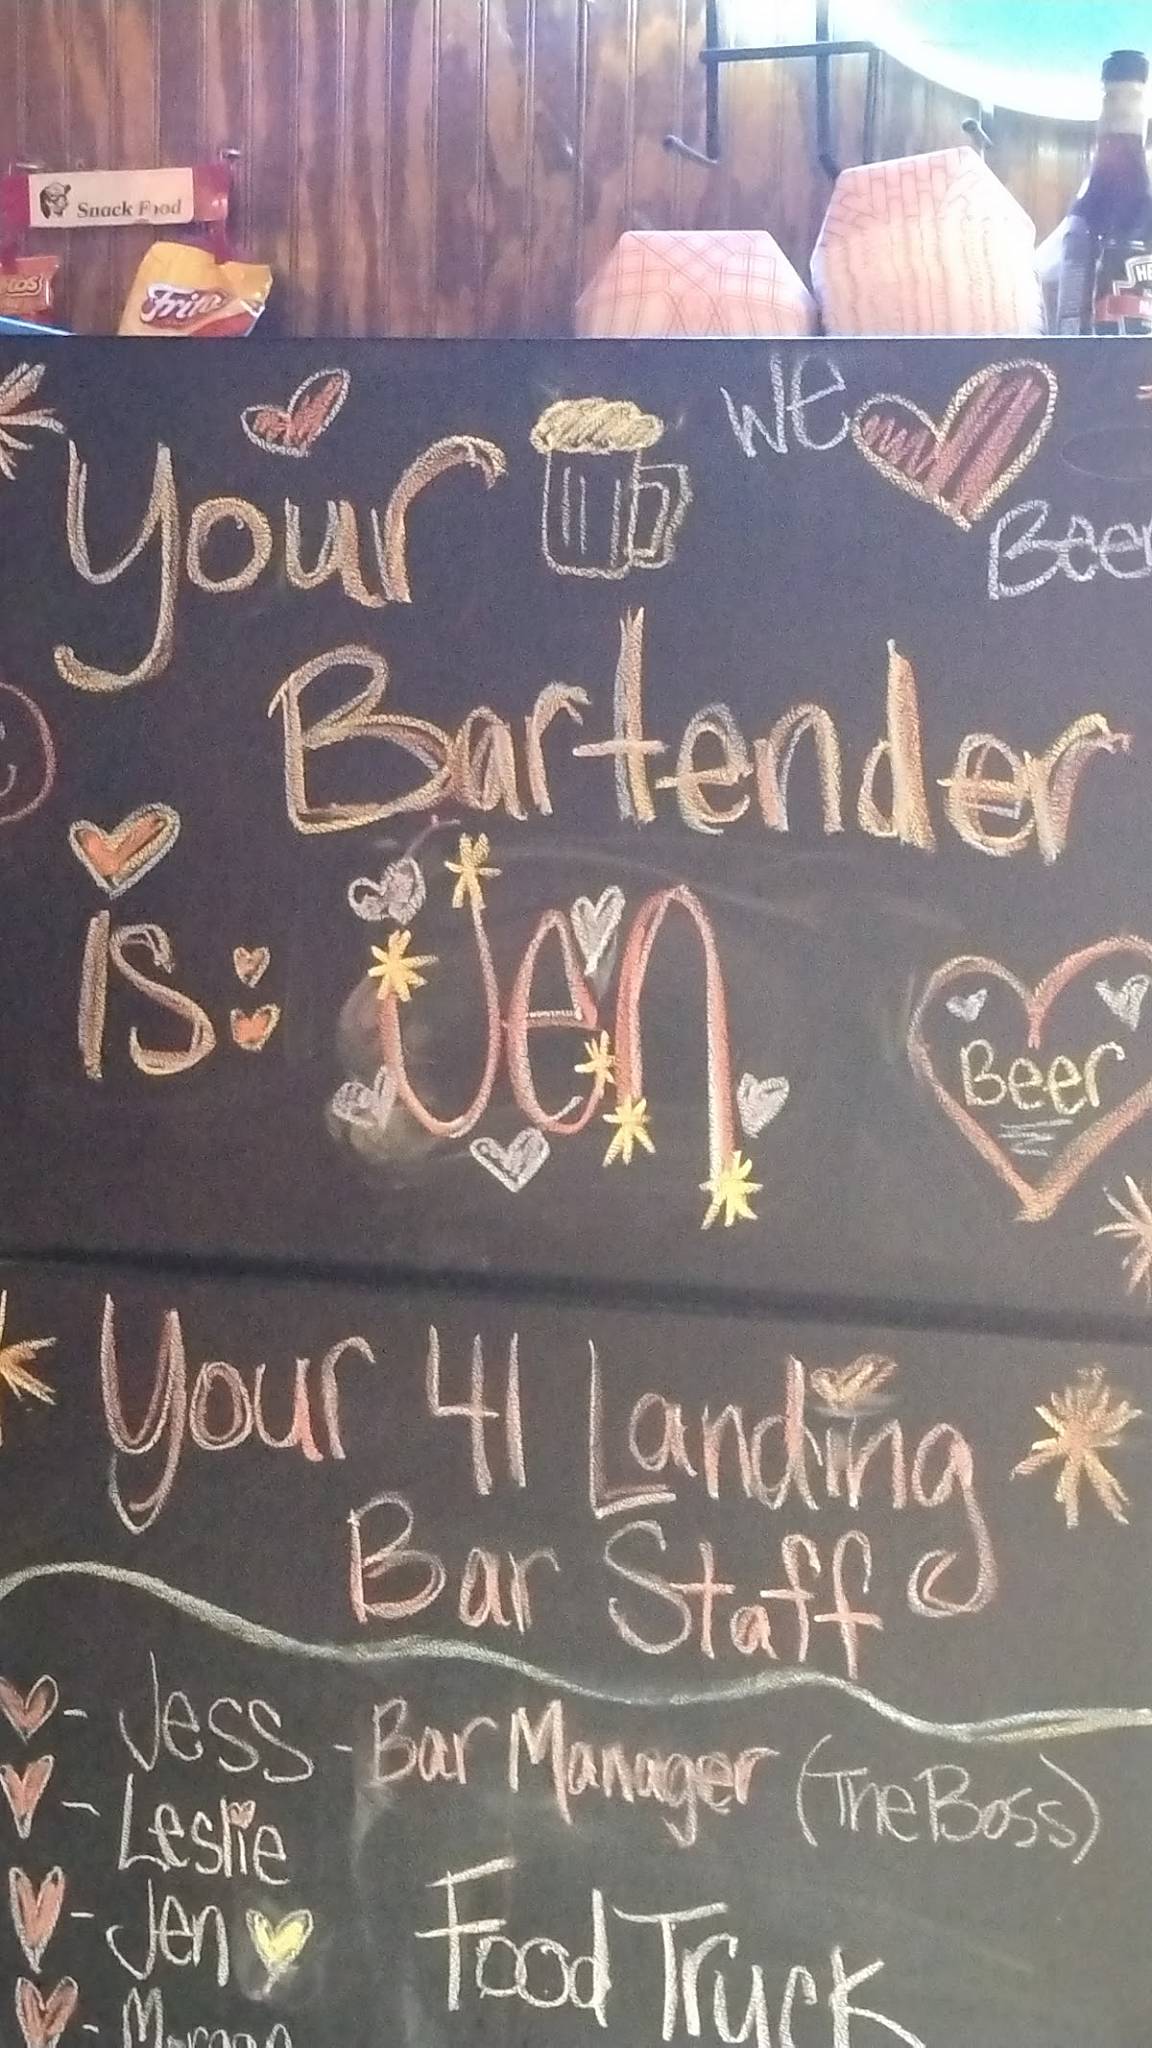 Snack Food
Your
WE
Beer
Bartender
is: Jen
Beer
Your 41 Landing
Bar Staff
- Jess - Bar Manager (The Boss)
- Leslie
- Jen
Food Truck
- Morgan